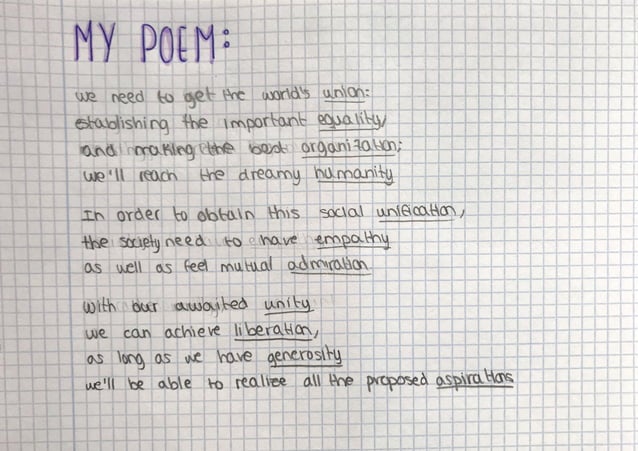 MY POEM:
we need to get the world's union:
establishing the important equality,
and making the best organization;
we'll reach the dreamy humanity
In order to obtain this social unification,
the society need to have empathy
as well as feel mutual admiration
with our awaited unity
we can achieve liberation,
as long as we have generosity
we'll be able to realize all the proposed aspirations